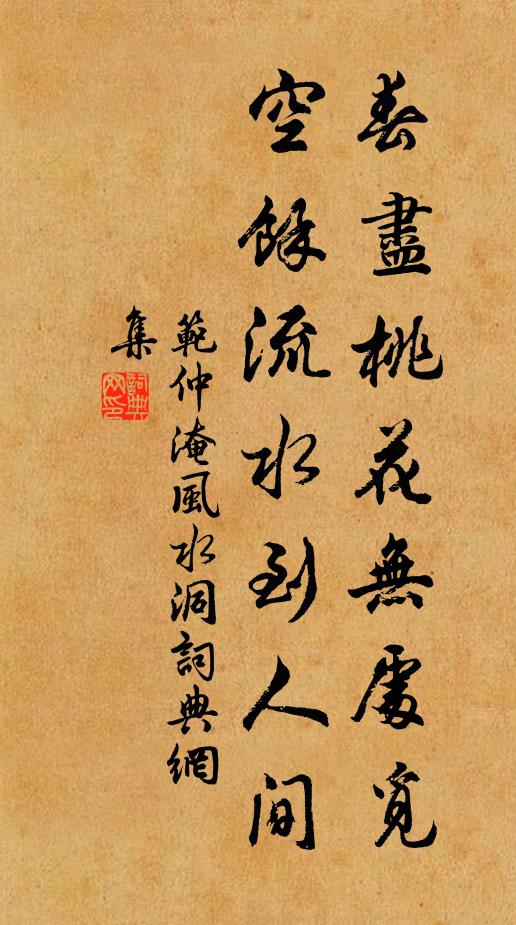 春盡桃花無處覓
空餘流水到人间
範仲淹風水洞詞典網
集
詞典
网印